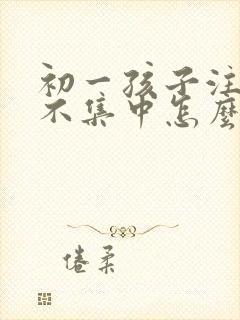 初一孩子注
不集中怎麼
倦柔